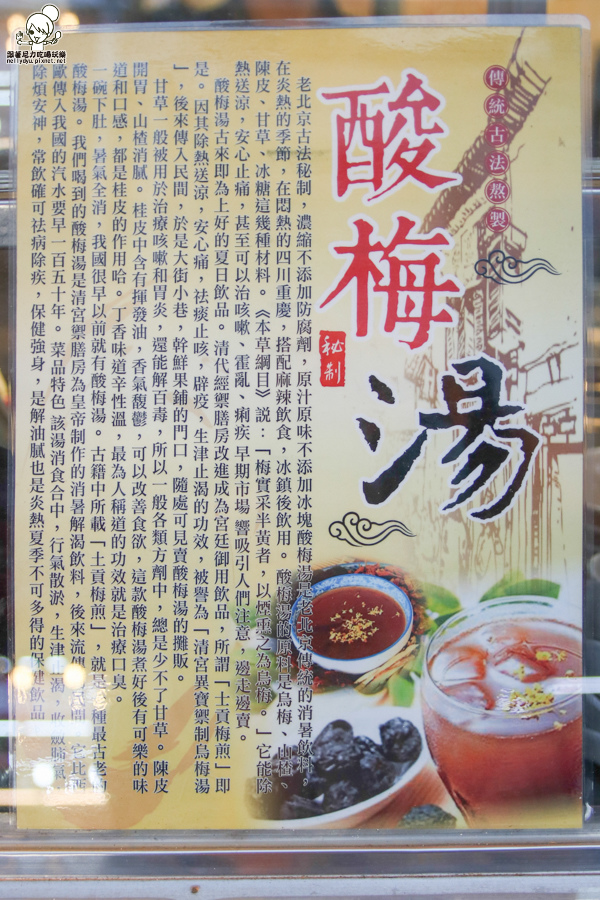 跟著尼力吃喝玩樂
nellydyu.pixnet.net
傳統古法熬製
酸梅湯
秘制
老北京古法秘制，濃縮不添加防腐劑，原汁原味不添加冰塊酸梅湯是老北京傳統的消暑飲料，
在炎熱的季節，在悶熱的四川重慶，搭配麻辣飲食，冰鎮後飲用。酸梅湯的原料是烏梅、山楂、
陳皮、甘草、冰糖這幾種材料。《本草綱目》說：「梅實采半黃者，以煙熏之為烏梅。」它能除
熱送涼，安心止痛，甚至可以治咳嗽、霍亂、痢疾早期市場 響吸引人們注意，邊走邊賣。
酸梅湯古來即為上好的夏日飲品。清代經禦膳房改進成為宮廷御用飲品，所謂「土貢梅煎」即
是。因其除熱送涼，安心痛，祛痰止咳，辟疫，生津止渴的功效，被譽為「清宮異寶禦制烏梅湯
」，後來傳入民間，於是大街小巷，幹鮮果鋪的門口，隨處可見賣酸梅湯的攤販。
甘草一般被用於治療咳嗽和胃炎，還能解百毒，所以一般各類方劑中，總是少不了甘草。陳皮
開胃、山楂消膩。桂皮中含有揮發油，香氣馥鬱，可以改善食欲，這款酸梅湯煮好後有可樂的味
道和口感，都是桂皮的作用哈。丁香味道辛性溫，最為人稱道的功效就是治療口臭。
一碗下肚，暑氣全消，我國很早以前就有酸梅湯。古籍中所載「土貢梅煎」，就是一種最古老的
酸梅湯。我們喝到的酸梅湯是清宮禦膳房為皇帝制作的消暑解渴飲料，後來流傳民間，它比西
歐傳入我國的汽水要早一百五十年。菜品特色 該湯消食合中，行氣散淤，生津止渴，收斂肺氣
除煩安神，常飲確可祛病除疾，保健強身，是解油膩也是炎熱夏季不可多得的保健飲品